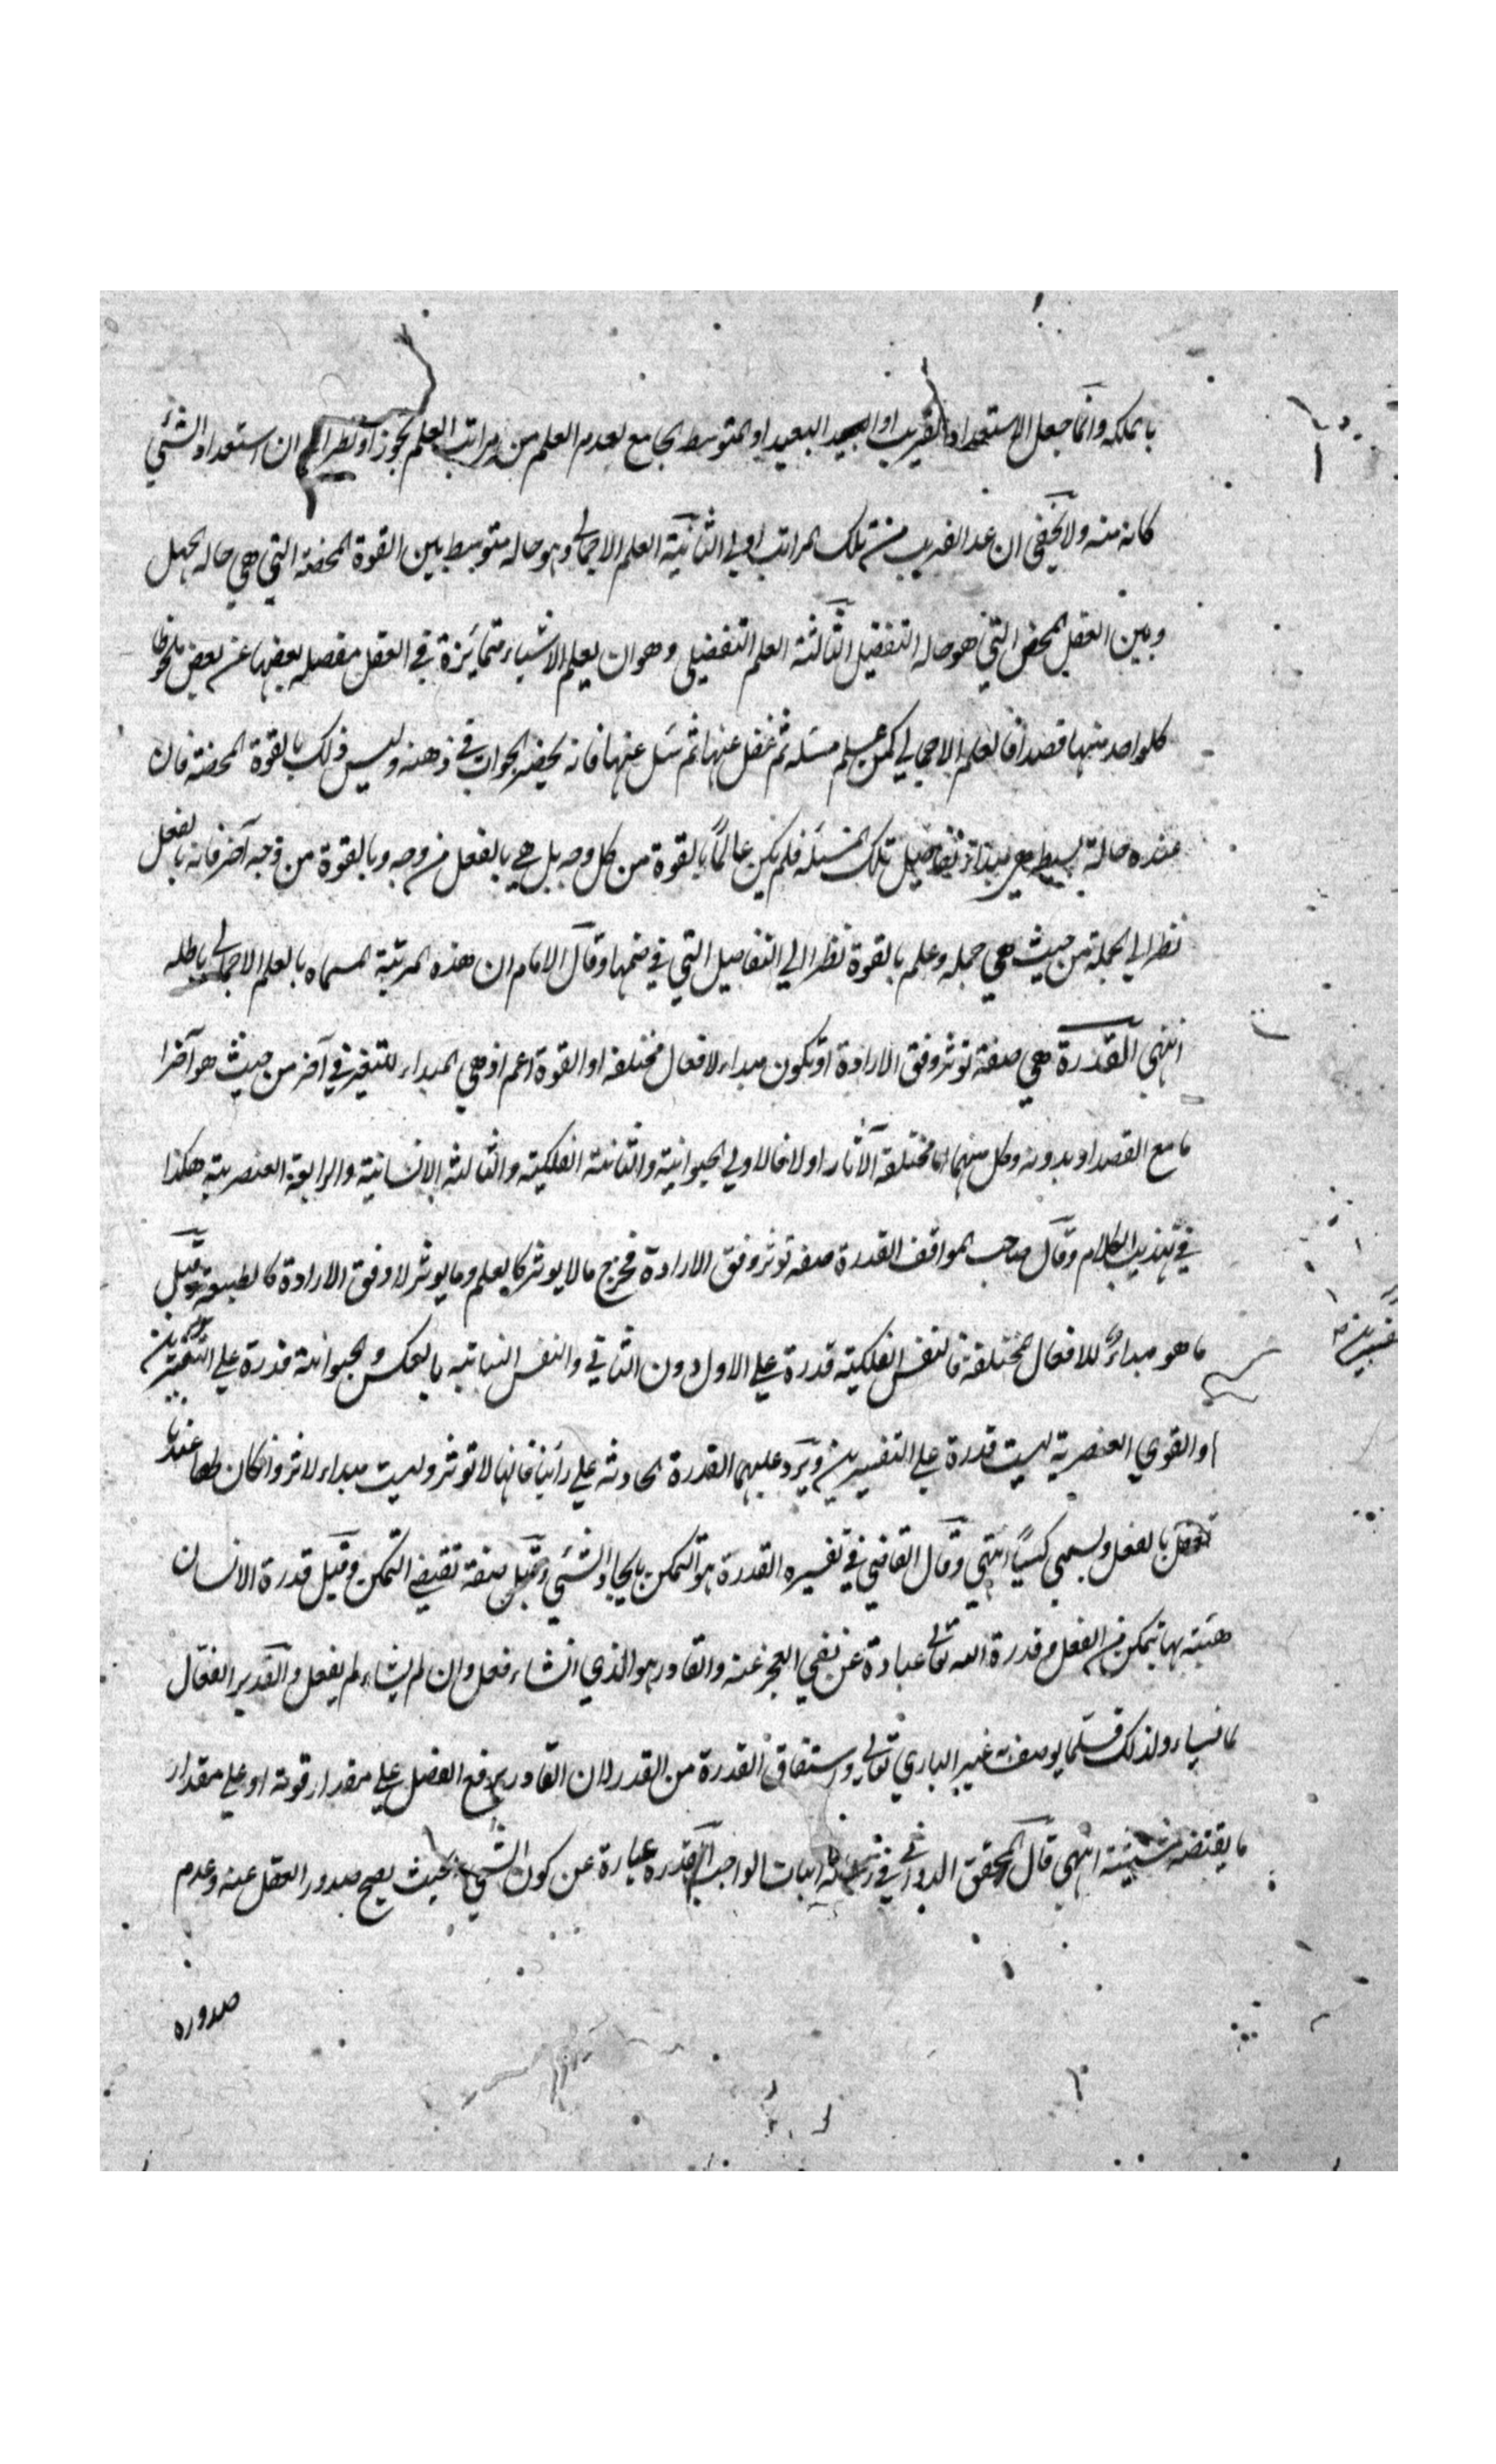 بالملكه وانما جعل الاستعداد القريب او البعيد او المتوسط الجامع لعدم العلم من مراتب العلم تجوزا ونظرا الى ان استعداد الشئ
كانه منه ولا يخفى ان عد القريب من تلك المراتب اولى الثانية العلم الاجمالى وهو حاله متوسط بين القوة المحضة التي هي حاله الجهل
وبين العقل المحض التي هو حاله التفضيل الثالثة العلم التفضيلي وهو ان يعلم الاشياء متمايزة في العقل مفصله بعضها عن بعض ملحوظا
كلواحد منها قصدا فالعلم الاجمالي كمن علم مسئله ثم غفل عنها ثم سئل عنها فانه يحضر الجواب في ذهنه وليس ذلك بالقوة المحضة فان
عنده حالة بسيط هي مبداء تفاصيل تلك المسئله فلم يكن عالماً بالقوة من كل وجه بل هي بالفعل من وجه وبالقوة من وجه آخر فانه بالفعل
نظرا الي الجملة من حيث هي جمله وعلم بالقوة نظرا الي التفاصيل التي في ضمنها وقال الامام ان هذه المرتبة المسماه بالعلم الاجمالي باطله
انتهى القدرة هي صفة توثر وفق الارادة او تكون مبداء لافعال مختلفه او القوة اعم اذ هي المبداء للتغير في آخر من حيث هو آخر ا
ما مع القصد او بدونه وكل منهما اما مختلفة الآثار اولا فالاولي الحيوانية والثانية الفلكية والثالثة الانسانية والرابعة العنصرية هكذا
في تهذيب الكلام وقال صاحب المواقف القدرة صفه توثر وفق الارادة فخرج مالا يوثر كالعلم وما يوثر لا وفق الارادة كالطبيعة وقيل
ما هو مبداءٌ للافعال المختلفة فالنفس الفلكية قدرة علي الاول دون الثاني والنفس النباتيه بالعكس والحيوانية قدرة علي التفسيرين
والقوي العنصرية ليست قدرة علي التفسيرين ويرد عليهما القدرة الحادثه علي رأينا فانها لا توثر وليست مبداء لاثر وان كان لها عندنا
تعلق بالفعل ويسمي كسباً انتهي وقال القاضي في تفسيره القدرة هو التمكن بايجاد الشئي وقيل صفة تقتضي التمكن وقيل قدرة الانسان
هيئة بها يتمكن من الفعل وقدرة الله تعالى عبادة عن نفي العجز عنه والقادر هو الذي انشاء فعل وان لم يشاء لم يفعل والقدير الفعال
لما يشاء ولذلك قلما يوصف به غير الباري تعالي واشتقاق القدرة من القدر لان القادر يرفع الفضل علي مقدار قوته او علي مقدار
ما يقتضه مشيئته انتهي قال المحقق الدواني في رسالة اثبات الواجب القدرة عبارة عن كون الشئي بحيث يصح صدور العقل عنه وعدم
صدوره